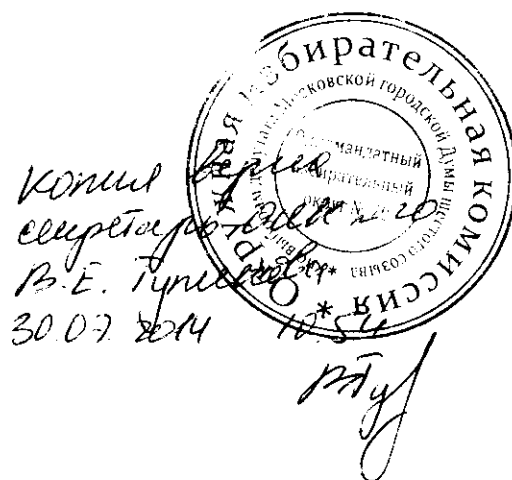 Окружная избирательная комиссия *
выборы депутатов Московской городской Думы шестого созыва *
одномандатный
избирательный
округ
копия верна
секретарь
В.Е.
30.07.2014 10.54